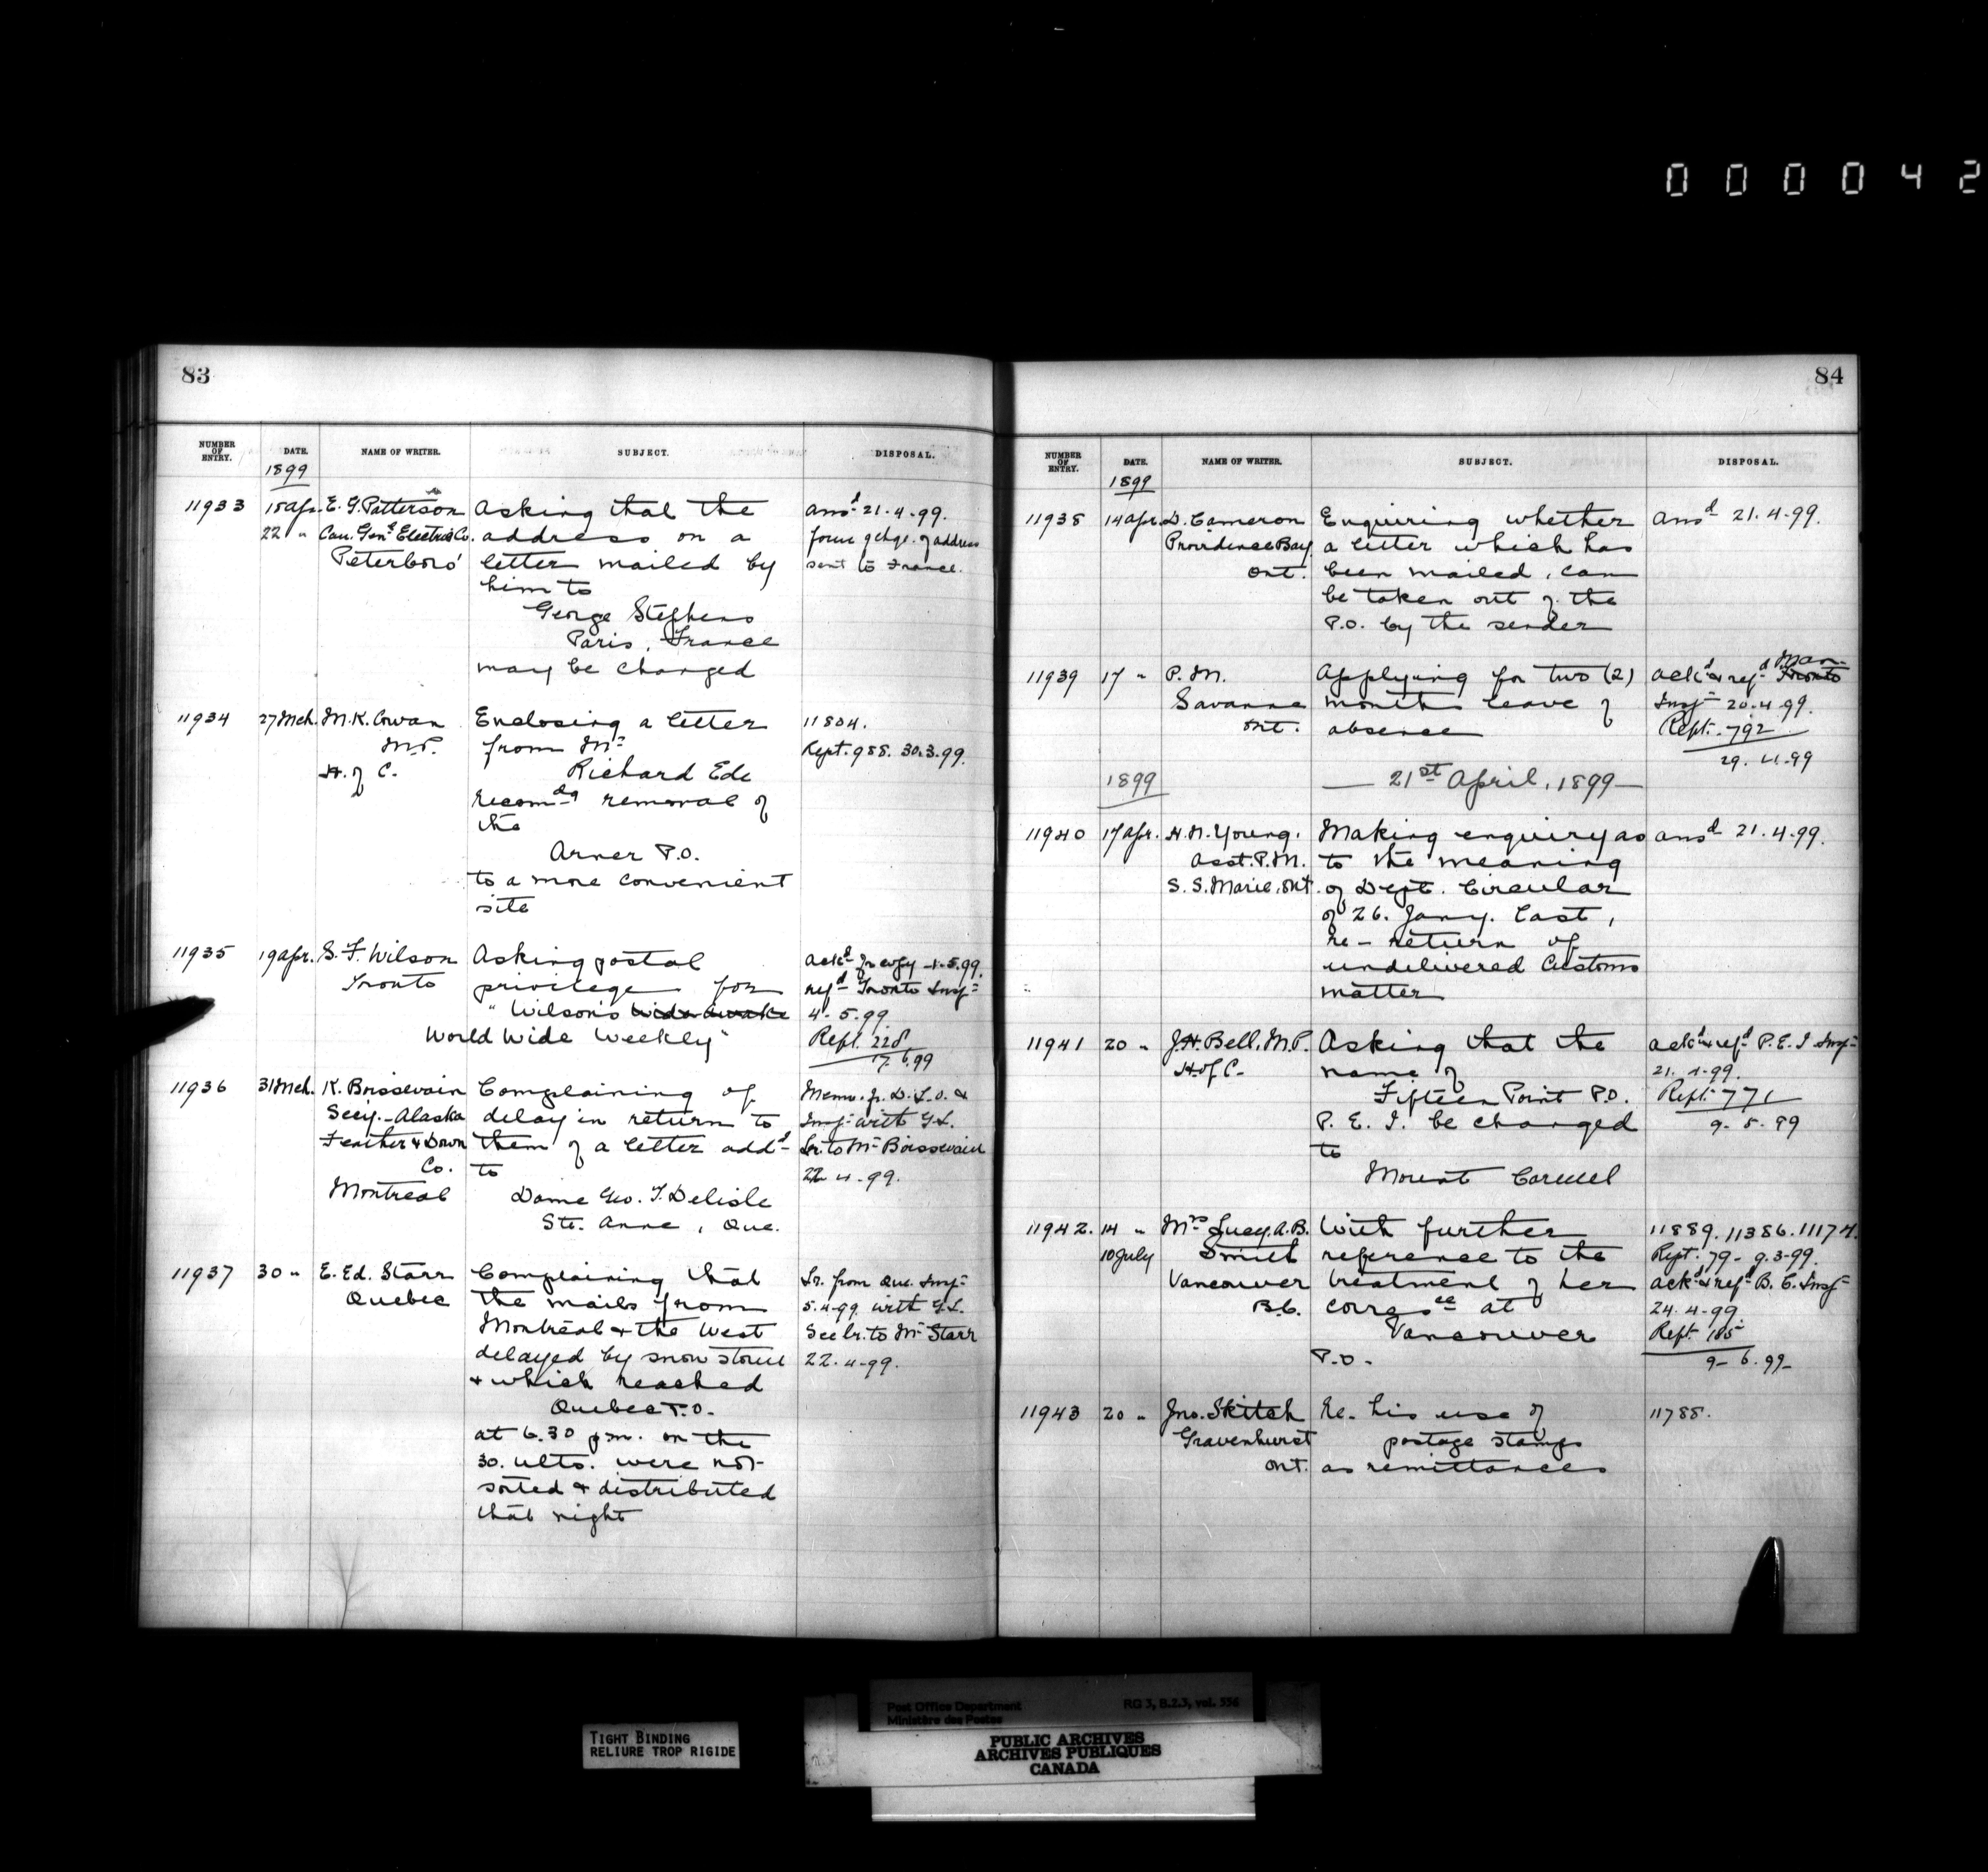 0 0 0 0 4 2
83
NUMBER OF ENTRY. DATE. NAME OF WRITER. SUBJECT. DISPOSAL.
1899
11933 15 Apr. E. G. Patterson Asking that the ansd 21.4.99.
22 " Can. Genl Electric Co. address on a form of chge. of address
Peterboro' letter mailed by sent to France.
him to
George Stephens
Paris, France
may be changed
11934 27 Mch. M. K. Cowan Enclosing a letter 11804.
M.P. from Mr Rept. 988. 30.3.99.
H. of C. Richard Ede
recomdg removal of
the
Arner P.O.
to a more convenient
site
11935 19 Apr. S. F. Wilson Asking postal
Toronto privilege for refd Toronto Insp
" Wilson's Wide Awake 4.5.99
World Wide Weekly" Rept. 228
17.6.99
11936 31 Mch. K. Boissevain Complaining of Memo. fr. D.L.O. &
Secy. Alaska delay in return to Insp with G.L.
Feather & Down them of a letter addd Lr. to Mr Boissevain
Co. to 22.4.99.
Montreal Dame Geo. T. Delisle
Ste. Anne, Que.
11937 30 " E. Ed. Starr Complaining that Lr. from Que. Insp
Quebec the mails from 5.4.99 with G.L.
Montreal & the West See lr. to Mr Starr
delayed by snow storm 22.4.99.
& which reached
Quebec P.O.
at 6.30 p.m. on the
30. ulto. were not
sorted & distributed
that night
84
NUMBER OF ENTRY. DATE. NAME OF WRITER. SUBJECT. DISPOSAL.
1899
11938 14 Apr. D. Cameron Enquiring whether ansd 21.4.99.
Providence Bay a letter which has
Ont. been mailed, can
be taken out of the
P.O. by the sender
Man.
11939 17 " P.M. Applying for two (2) ackd & refd Toronto
Savanne months leave of Insp 20.4.99.
Ont. absence Rept. 792
29.4.99
1899 — 21st April, 1899 —
11940 17 Apr. H. N. Young. Making enquiry as ansd 21.4.99.
Asst. P.M. to the meaning
S. S. Marie, Ont. of Dept. Circular
of 26. Jany. last,
re - return of
undelivered Customs
matter
11941 20 " J.H. Bell, M.P. Asking that the ackd & refd P.E.I. Insp
H. of C. name of 21.4.99.
Fifteen Point P.O. Rept. 771
P. E. I. be changed 9.5.99
to
Mount Carmel
11942. 14 " Mrs Lucy. A. B. With further 11889. 11386. 11174.
10 July Smith reference to the Rept. 79 - 9.3.99.
Vancouver treatment of her ackd & refd B.C. Insp
B.C. correspce at 24.4.99.
Vancouver Rept. 185
P.O. 9-6.99
11943 20 " Jno. Skitch Re- his use of 11788.
Gravenhurst postage stamps
Ont. as remittances
TIGHT BINDING
RELIURE TROP RIGIDE
Post Office Department RG 3, B.2.3, vol. 556
Ministère des Postes
PUBLIC ARCHIVES
ARCHIVES PUBLIQUES
CANADA